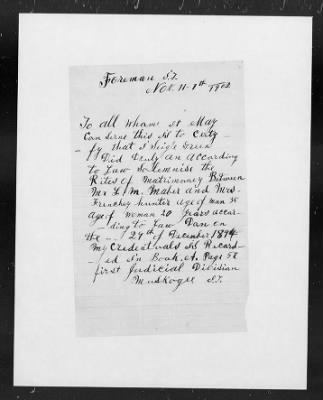 Foreman I.T.
Nov. 11. 7th 1902
To all whom it May
Con serne this is to Certy
fy that I Seigle Green
Did Truly an according
to Law Solemnise the
Rites of Matrimoney Between
Mr L M. Maher and Mrs.
Frenchey hunter age of man 30
age of woman 20 years accor
ding to Law Dan on
the 29th of December 1894
My Credentuals is Recard
ed in Book, A. Page 58
first Judicial Division
Muskogee I.T.